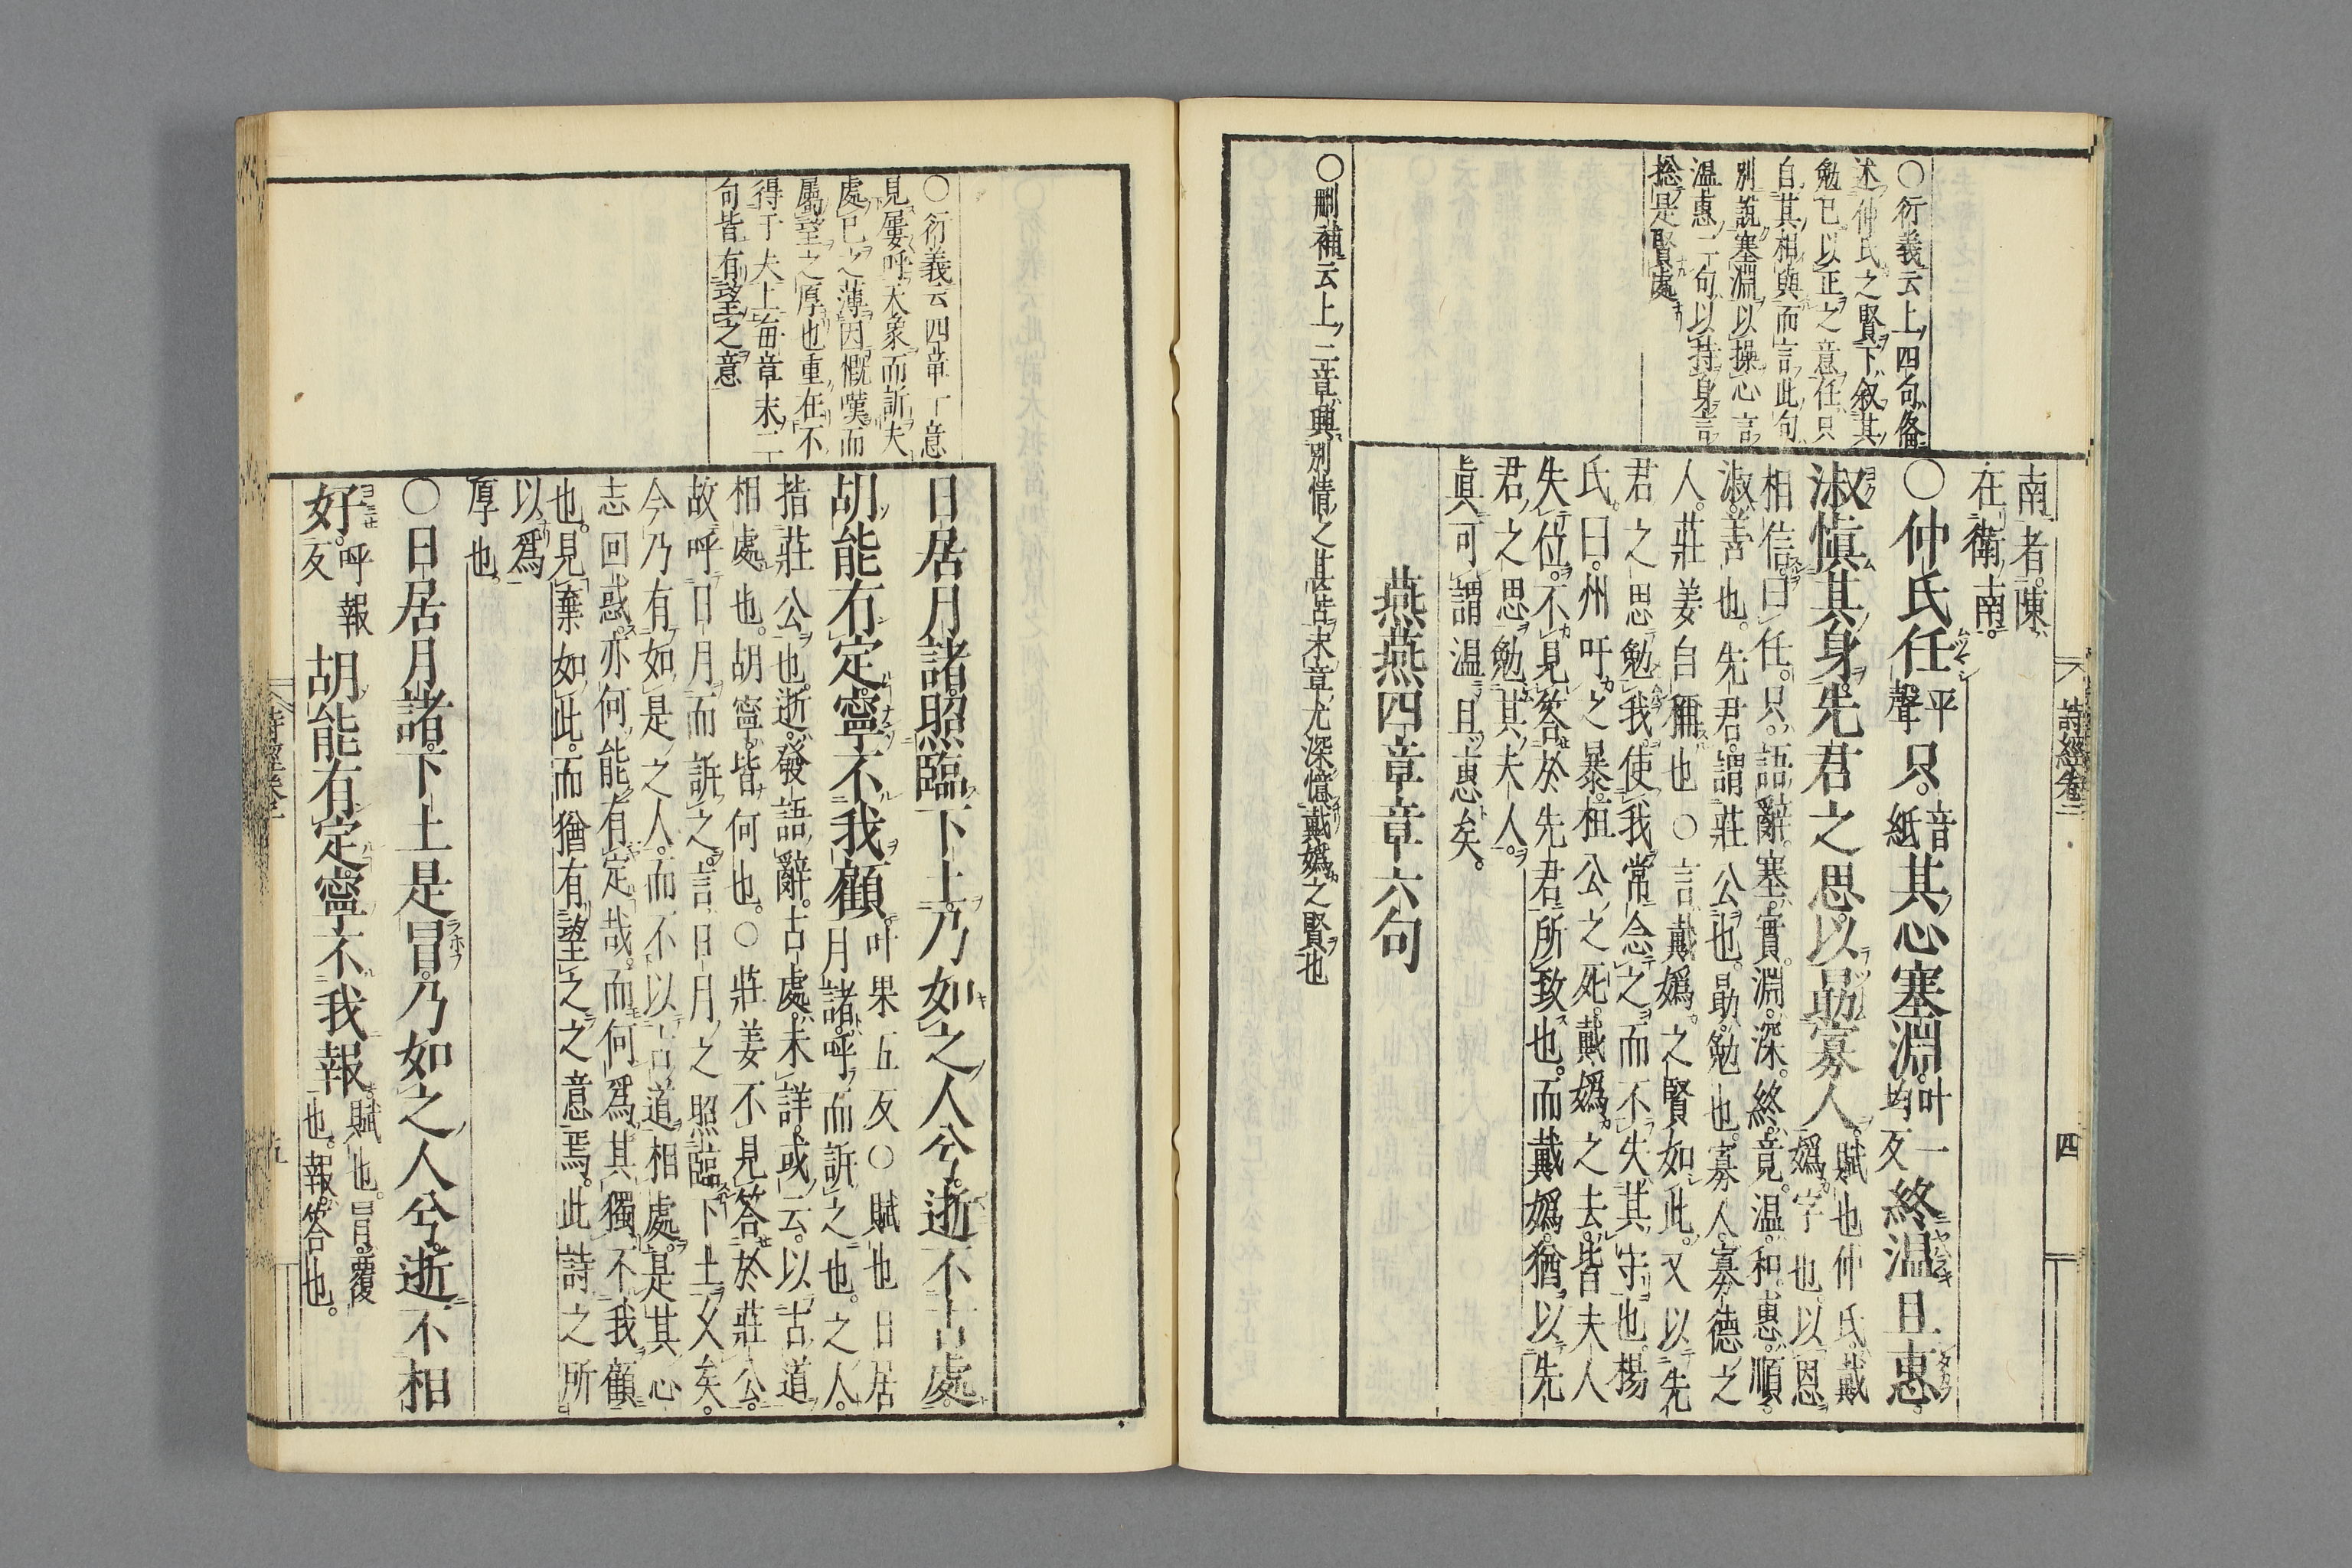 ○衍義云上四句俻
述仲氏之賢下叙其
勉已以正之意任只
自其相與而言此句
別說塞淵以操心言
温惠二句以持身言
捴是賢處
南者陳
在衛南
○仲氏任平聲只音紙其心塞淵叶一均反終温且惠
淑愼其身先君之思以勗寡人賦也仲氏戴
嬀字也以恩
相信曰任只語辭塞實淵深終竟温和惠順
淑善也先君謂莊公也勗勉也寡人寡德之
人莊姜自稱也○言戴嬀之賢如此又以先
君之思勉我使我常念之而不失其守也楊
氏曰州吁之暴桓公之死戴嬀之去皆夫人
失位不見答於先君所致也而戴嬀猶以先
君之思勉其夫人
眞可謂温且惠矣
燕燕四章章六句
○刪補云上三章興別情之甚苦末章尤深憶戴嬀之賢也
詩經卷二
四
○衍義云四章一意
見屢呼天象而訴夫
處已之薄因慨嘆而
屬望之厚也重在不
得于夫上每章末二
句皆有望之意
日居月諸照臨下土乃如之人兮逝不古處
胡能有定寧不我顧叶果五反○賦也日居
月諸呼而訴之也之人
指莊公也逝發語辭古處未詳或云以古道
相處也胡寧皆何也○莊姜不見答於莊公
故呼日月而訴之言日月之照臨下土乆矣
今乃有如是之人而不以古道相處是其心
志回惑亦何能有定哉而何爲其獨不我顧
也見棄如此而猶有望之之意焉此詩之所
以爲
厚也
○日居月諸下土是冒乃如之人兮逝不相
好呼報反胡能有定寧不我報賦也冒覆
也報答也